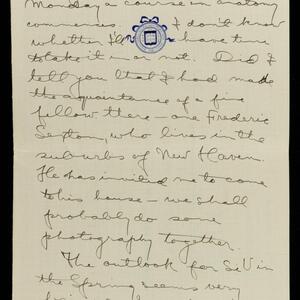 Monday a course in anatomy
commences. I don't know
whether I'll have time
to take it in or not. Did I
tell you that I had made
the acquaintance of a fine
fellow there – one Frederic
Sexton, who lives in the
suburbs of New Haven.
He has invited me to come
to his house – we shall
probably do some
photography together.
The outlook for in
the Spring seems very